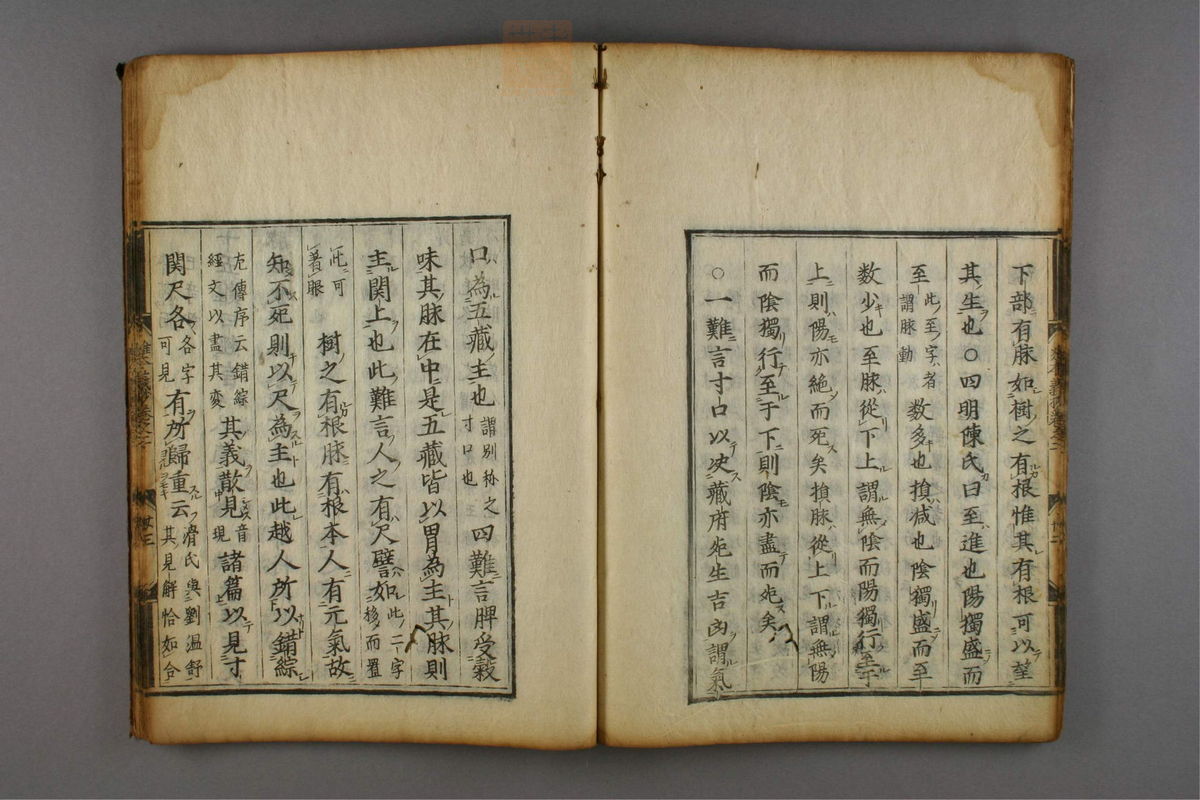 下部有脉如樹之有根惟其有根可以望
其生也○四明陳氏曰至進也陽獨盛而
至此至字者謂脉動数多也損减也陰獨盛而至
数少也至脉從下上謂無陰而陽獨行至于
上則陽亦絶而死矣損脉從上下謂無陽
而陰獨行至于下則陰亦盡而死矣
○一難言寸口以决藏府死生吉凶謂氣
口為五藏主也謂別称之寸口也四難言脾受穀
味其脉在中是五藏皆以胃為主其脉則
主関上也此難言人之有尺譬如此二字移而置
此可著眼樹之有根脉有根本人有元氣故
知不死則以尺為主也此越人所以錯綜
左傳序云錯綜經文以盡其変其義散見音現諸篇以見寸
関尺各各字可見有所歸重云滑氏與劉温舒其見解恰如合